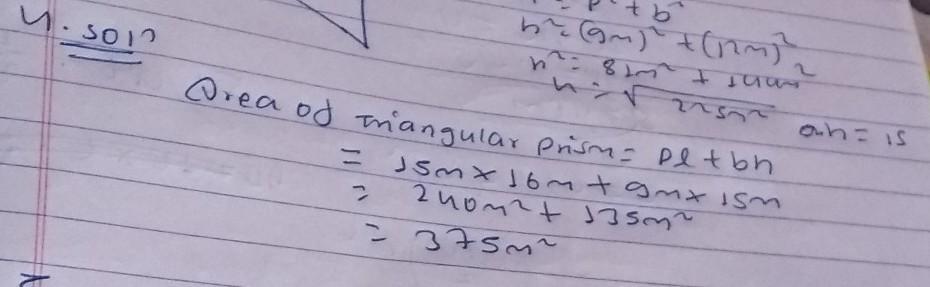 4. soln
p² + b²
h² = (9m)² + (12m)²
h² = 81m² + 144m²
h = √225m² ah = 15
Area of triangular prism = pl + bh
= 15m × 16m + 9m × 15m
= 240m² + 135m²
= 375m²